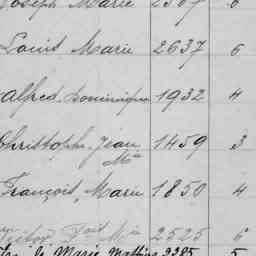 Joseph Marie 2367 6
Louis Marie 2637 6
Alfred Dominique 1932 4
Christophe Jean 1459 3
Mie
François Marie 1850 4
Victor Fort Mie 2525 6
Marie Mathieu 3385 5